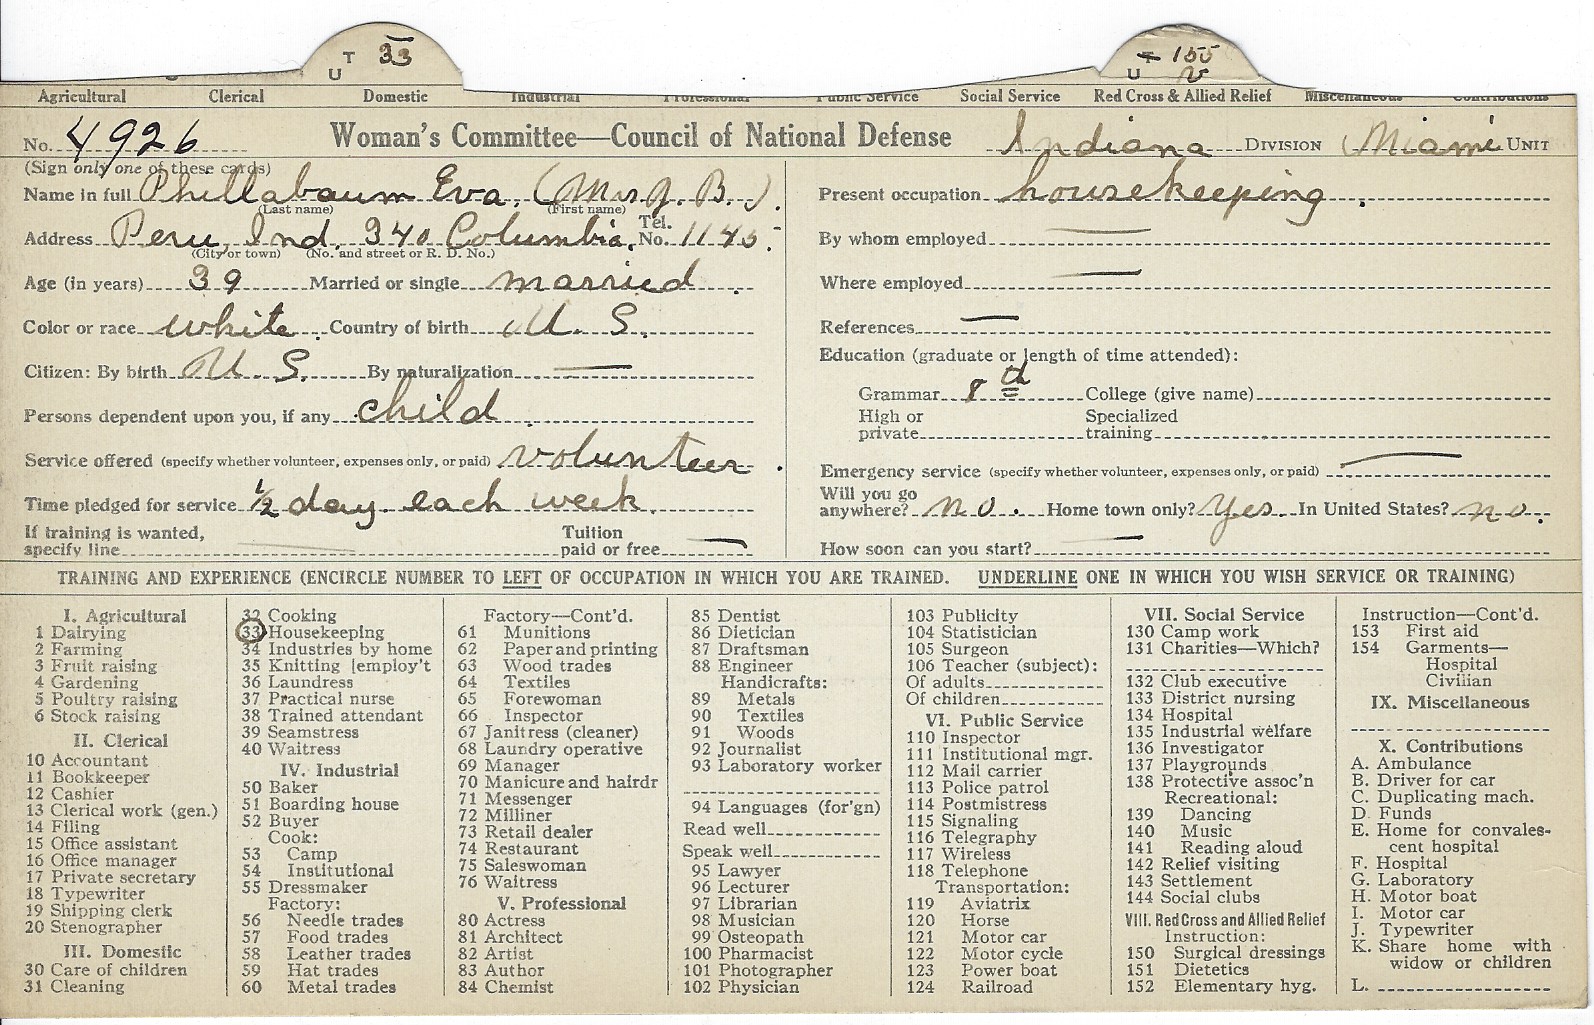 T 33
U
T 155
U V
Agricultural Clerical Domestic Industrial Professional Public Service Social Service Red Cross & Allied Relief Miscellaneous Contributions
No. 4926 Woman's Committee—Council of National Defense Indiana DIVISION Miami UNIT
(Sign only one of these cards)
Name in full Phillabaum Eva. (Mrs J. B.).
(Last name) (First name)
Address Peru, Ind. 340 Columbia. Tel. No. 1145.
(City or town) (No. and street or R. D. No.)
Age (in years) 39 Married or single married.
Color or race white. Country of birth U. S.
Citizen: By birth U. S. By naturalization —
Persons dependent upon you, if any child.
Service offered (specify whether volunteer, expenses only, or paid) volunteer.
Time pledged for service ½ day each week.
If training is wanted, specify line — Tuition paid or free —
Present occupation housekeeping.
By whom employed —
Where employed —
References —
Education (graduate or length of time attended):
Grammar 8th College (give name)
High or private Specialized training
Emergency service (specify whether volunteer, expenses only, or paid) —
Will you go anywhere? no. Home town only? Yes In United States? no.
How soon can you start? —
TRAINING AND EXPERIENCE (ENCIRCLE NUMBER TO LEFT OF OCCUPATION IN WHICH YOU ARE TRAINED. UNDERLINE ONE IN WHICH YOU WISH SERVICE OR TRAINING)
I. Agricultural
1 Dairying
2 Farming
3 Fruit raising
4 Gardening
5 Poultry raising
6 Stock raising
II. Clerical
10 Accountant
11 Bookkeeper
12 Cashier
13 Clerical work (gen.)
14 Filing
15 Office assistant
16 Office manager
17 Private secretary
18 Typewriter
19 Shipping clerk
20 Stenographer
III. Domestic
30 Care of children
31 Cleaning
32 Cooking
33 Housekeeping
34 Industries by home
35 Knitting [employ't
36 Laundress
37 Practical nurse
38 Trained attendant
39 Seamstress
40 Waitress
IV. Industrial
50 Baker
51 Boarding house
52 Buyer
Cook:
53 Camp
54 Institutional
55 Dressmaker
Factory:
56 Needle trades
57 Food trades
58 Leather trades
59 Hat trades
60 Metal trades
Factory—Cont'd.
61 Munitions
62 Paper and printing
63 Wood trades
64 Textiles
65 Forewoman
66 Inspector
67 Janitress (cleaner)
68 Laundry operative
69 Manager
70 Manicure and hairdr
71 Messenger
72 Milliner
73 Retail dealer
74 Restaurant
75 Saleswoman
76 Waitress
V. Professional
80 Actress
81 Architect
82 Artist
83 Author
84 Chemist
85 Dentist
86 Dietician
87 Draftsman
88 Engineer
Handicrafts:
89 Metals
90 Textiles
91 Woods
92 Journalist
93 Laboratory worker
94 Languages (for'gn)
Read well
Speak well
95 Lawyer
96 Lecturer
97 Librarian
98 Musician
99 Osteopath
100 Pharmacist
101 Photographer
102 Physician
103 Publicity
104 Statistician
105 Surgeon
106 Teacher (subject):
Of adults
Of children
VI. Public Service
110 Inspector
111 Institutional mgr.
112 Mail carrier
113 Police patrol
114 Postmistress
115 Signaling
116 Telegraphy
117 Wireless
118 Telephone
Transportation:
119 Aviatrix
120 Horse
121 Motor car
122 Motor cycle
123 Power boat
124 Railroad
VII. Social Service
130 Camp work
131 Charities—Which?
132 Club executive
133 District nursing
134 Hospital
135 Industrial welfare
136 Investigator
137 Playgrounds
138 Protective assoc'n
Recreational:
139 Dancing
140 Music
141 Reading aloud
142 Relief visiting
143 Settlement
144 Social clubs
VIII. Red Cross and Allied Relief
Instruction:
150 Surgical dressings
151 Dietetics
152 Elementary hyg.
Instruction—Cont'd.
153 First aid
154 Garments—
Hospital
Civilian
IX. Miscellaneous
X. Contributions
A. Ambulance
B. Driver for car
C. Duplicating mach.
D. Funds
E. Home for convales-
cent hospital
F. Hospital
G. Laboratory
H. Motor boat
I. Motor car
J. Typewriter
K. Share home with
widow or children
L.